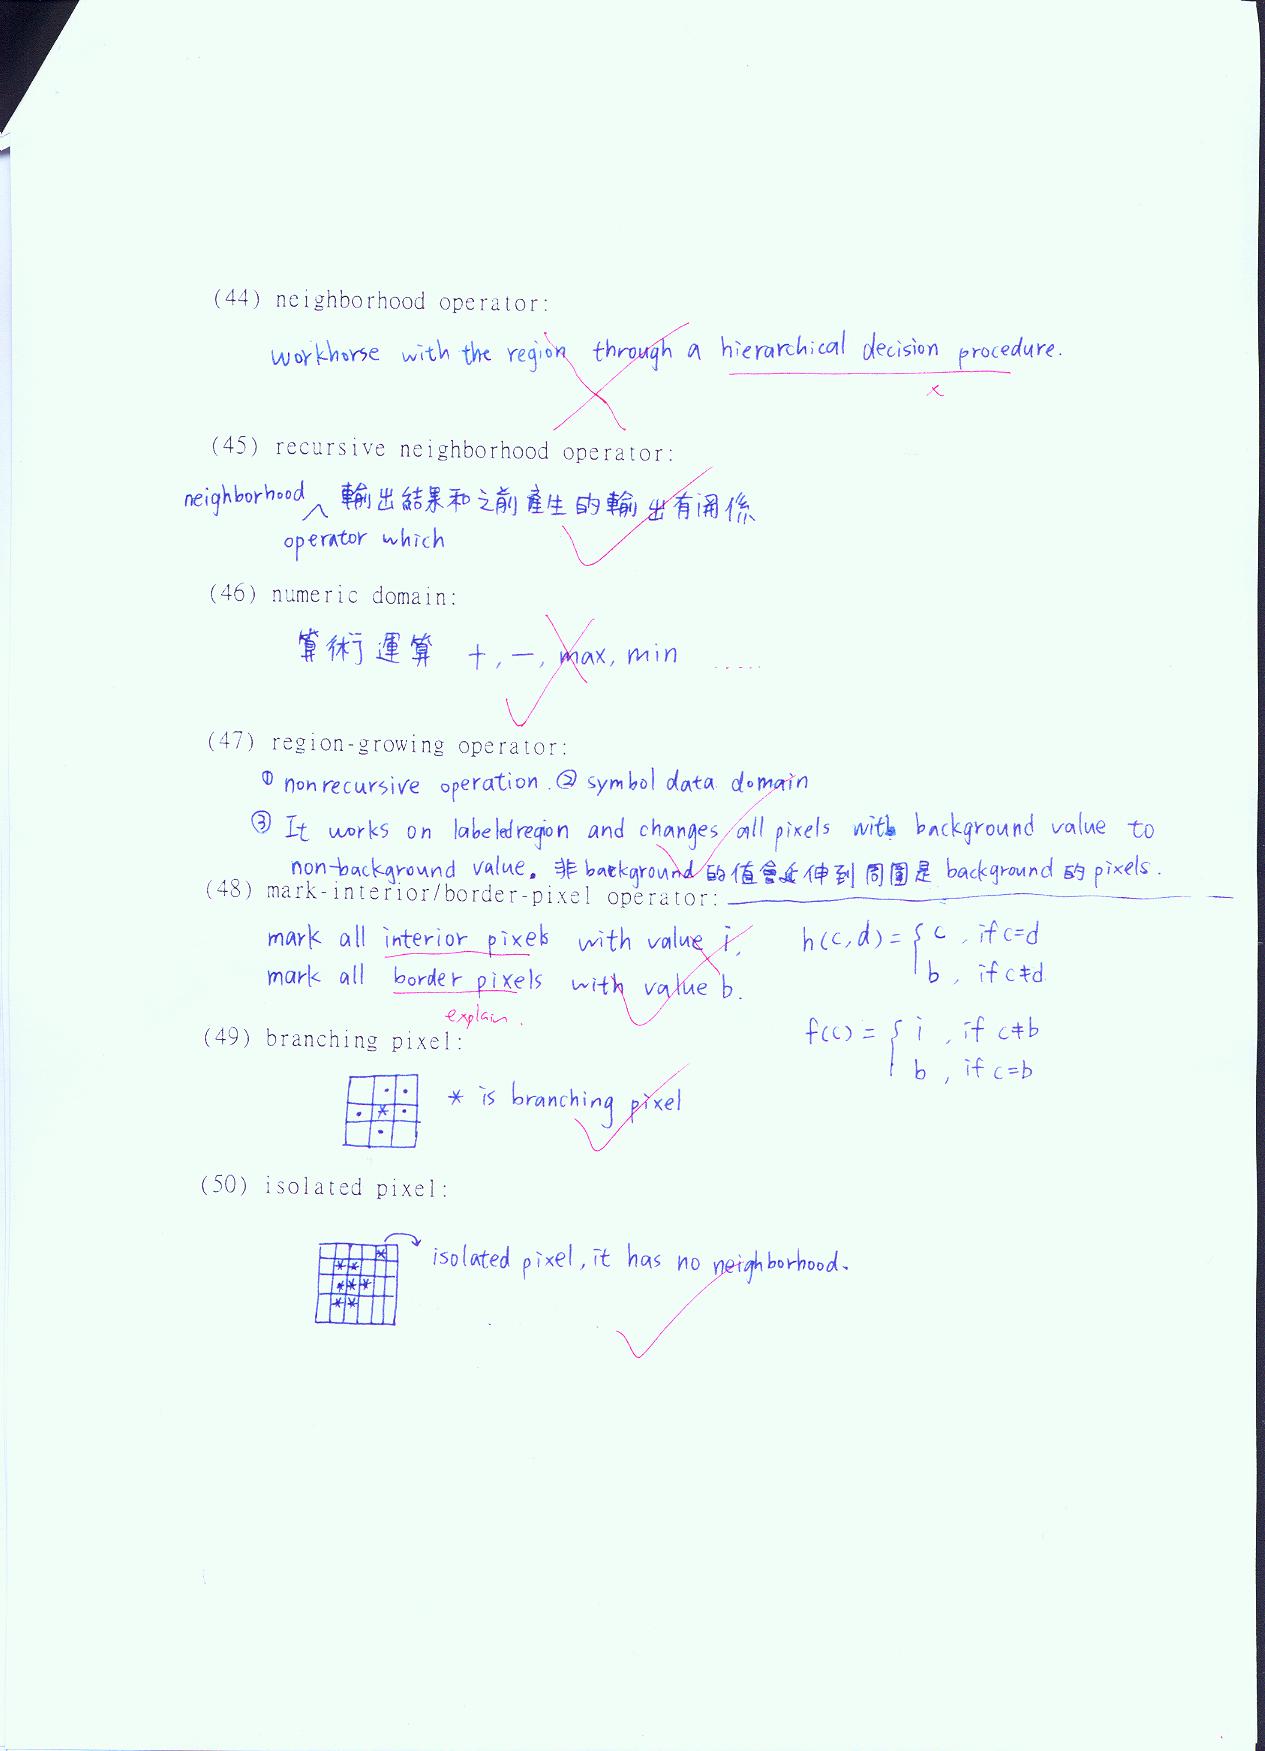 (44) neighborhood operator:
workhorse with the region through a hierarchical decision procedure.
x
(45) recursive neighborhood operator:
neighborhood ^ 輸出結果和之前產生的輸出有關係
operator which
(46) numeric domain:
算術運算 +, -, max, min .....
(47) region-growing operator:
① nonrecursive operation. ② symbol data domain
③ It works on labeled region and changes all pixels with background value to
non-background value. 非background的值會延伸到周圍是background的pixels.
(48) mark-interior/border-pixel operator:
mark all interior pixels with value i, h(c,d) = { c , if c=d
mark all border pixels with value b. b , if c≠d
explain.
(49) branching pixel:
f(c) = { i , if c≠b
b , if c=b
* is branching pixel
(50) isolated pixel:
isolated pixel, it has no neighborhood.